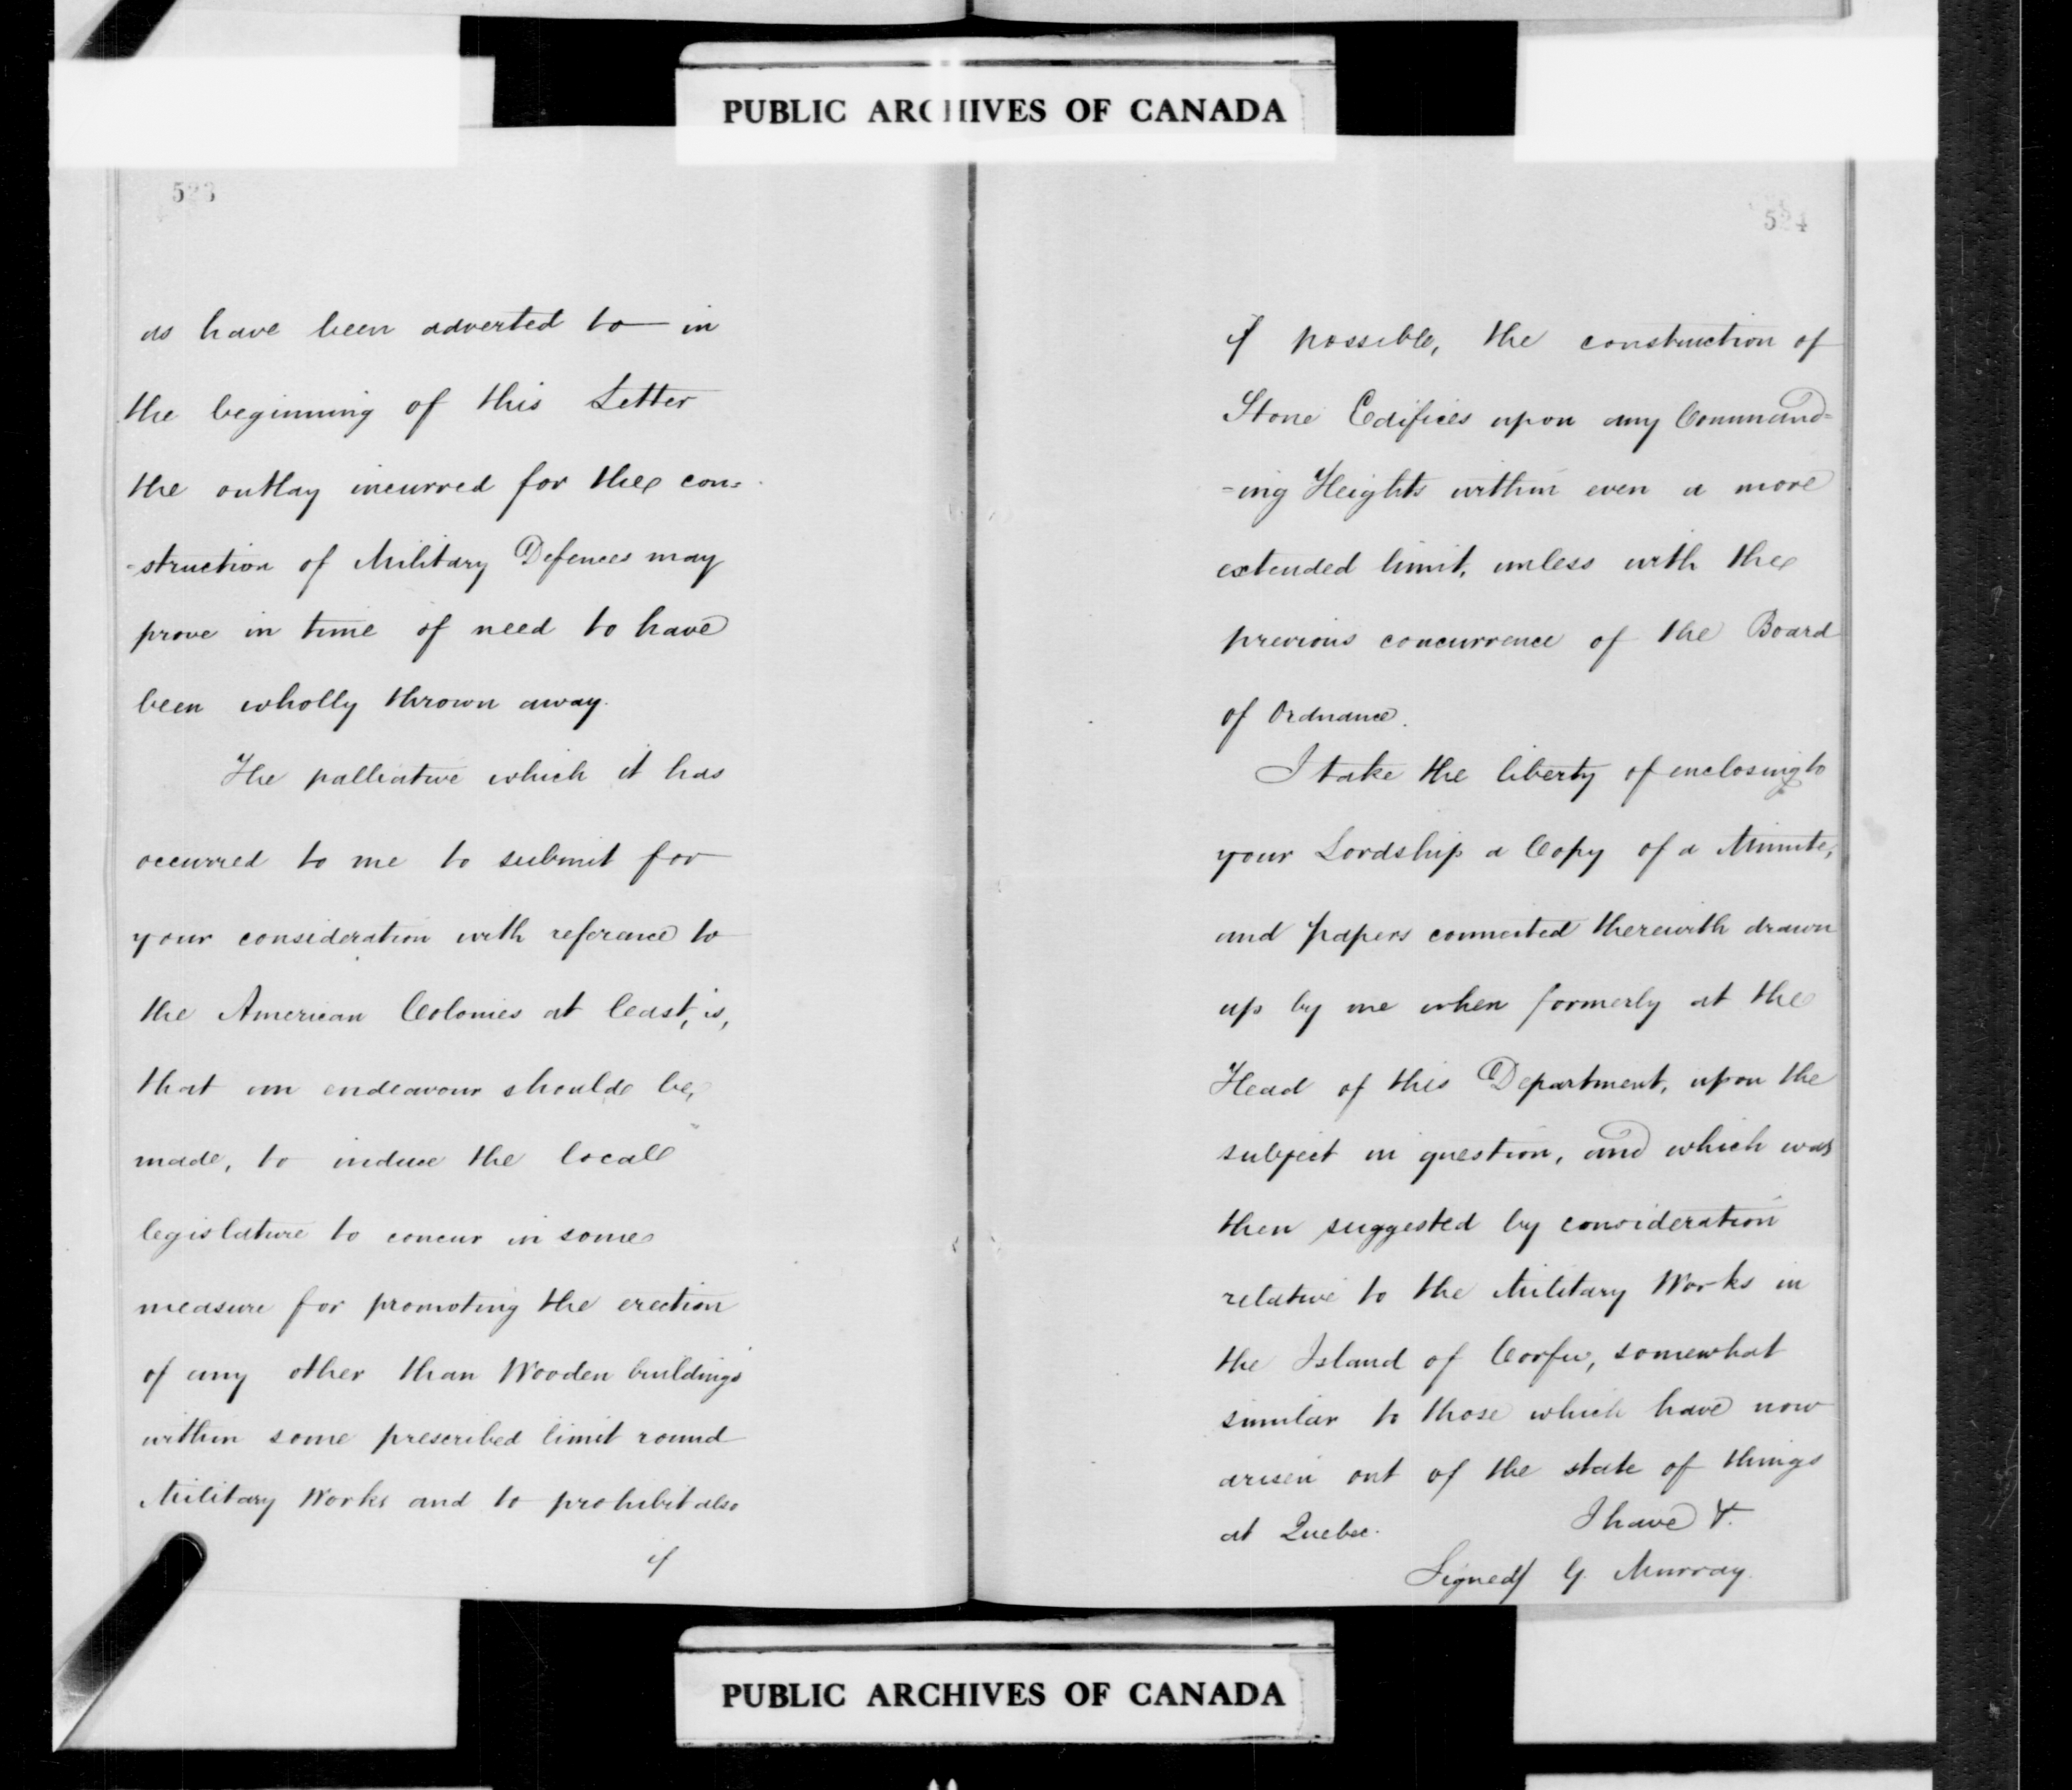 PUBLIC ARCHIVES OF CANADA
523
as have been adverted to in
the beginning of this Letter
the outlay incurred for the con=
-struction of Military Defences may
prove in time of need to have
been wholly thrown away.
The palliative which it has
occurred to me to submit for
your consideration with reference to
the American Colonies at least, is,
that an endeavour should be,
made, to induce the local
legislature to concur in some
measure for promoting the erection
of any other than Wooden buildings
within some prescribed limit round
Military Works and to prohibit also
if
524
if possible, the construction of
Stone Edifices upon any Command=
-ing Heights within even a more
extended limit, unless with the
previous concurrence of the Board
of Ordnance.
I take the liberty of enclosing to
your Lordship a Copy of a Minute,
and papers connected therewith drawn
up by me when formerly at the
Head of this Department, upon the
subject in question, and which was
then suggested by consideration
relative to the Military Works in
the Island of Corfu, somewhat
similar to those which have now
arisen out of the state of things
at Quebec. I have &.
Signed/ G. Murray.
PUBLIC ARCHIVES OF CANADA